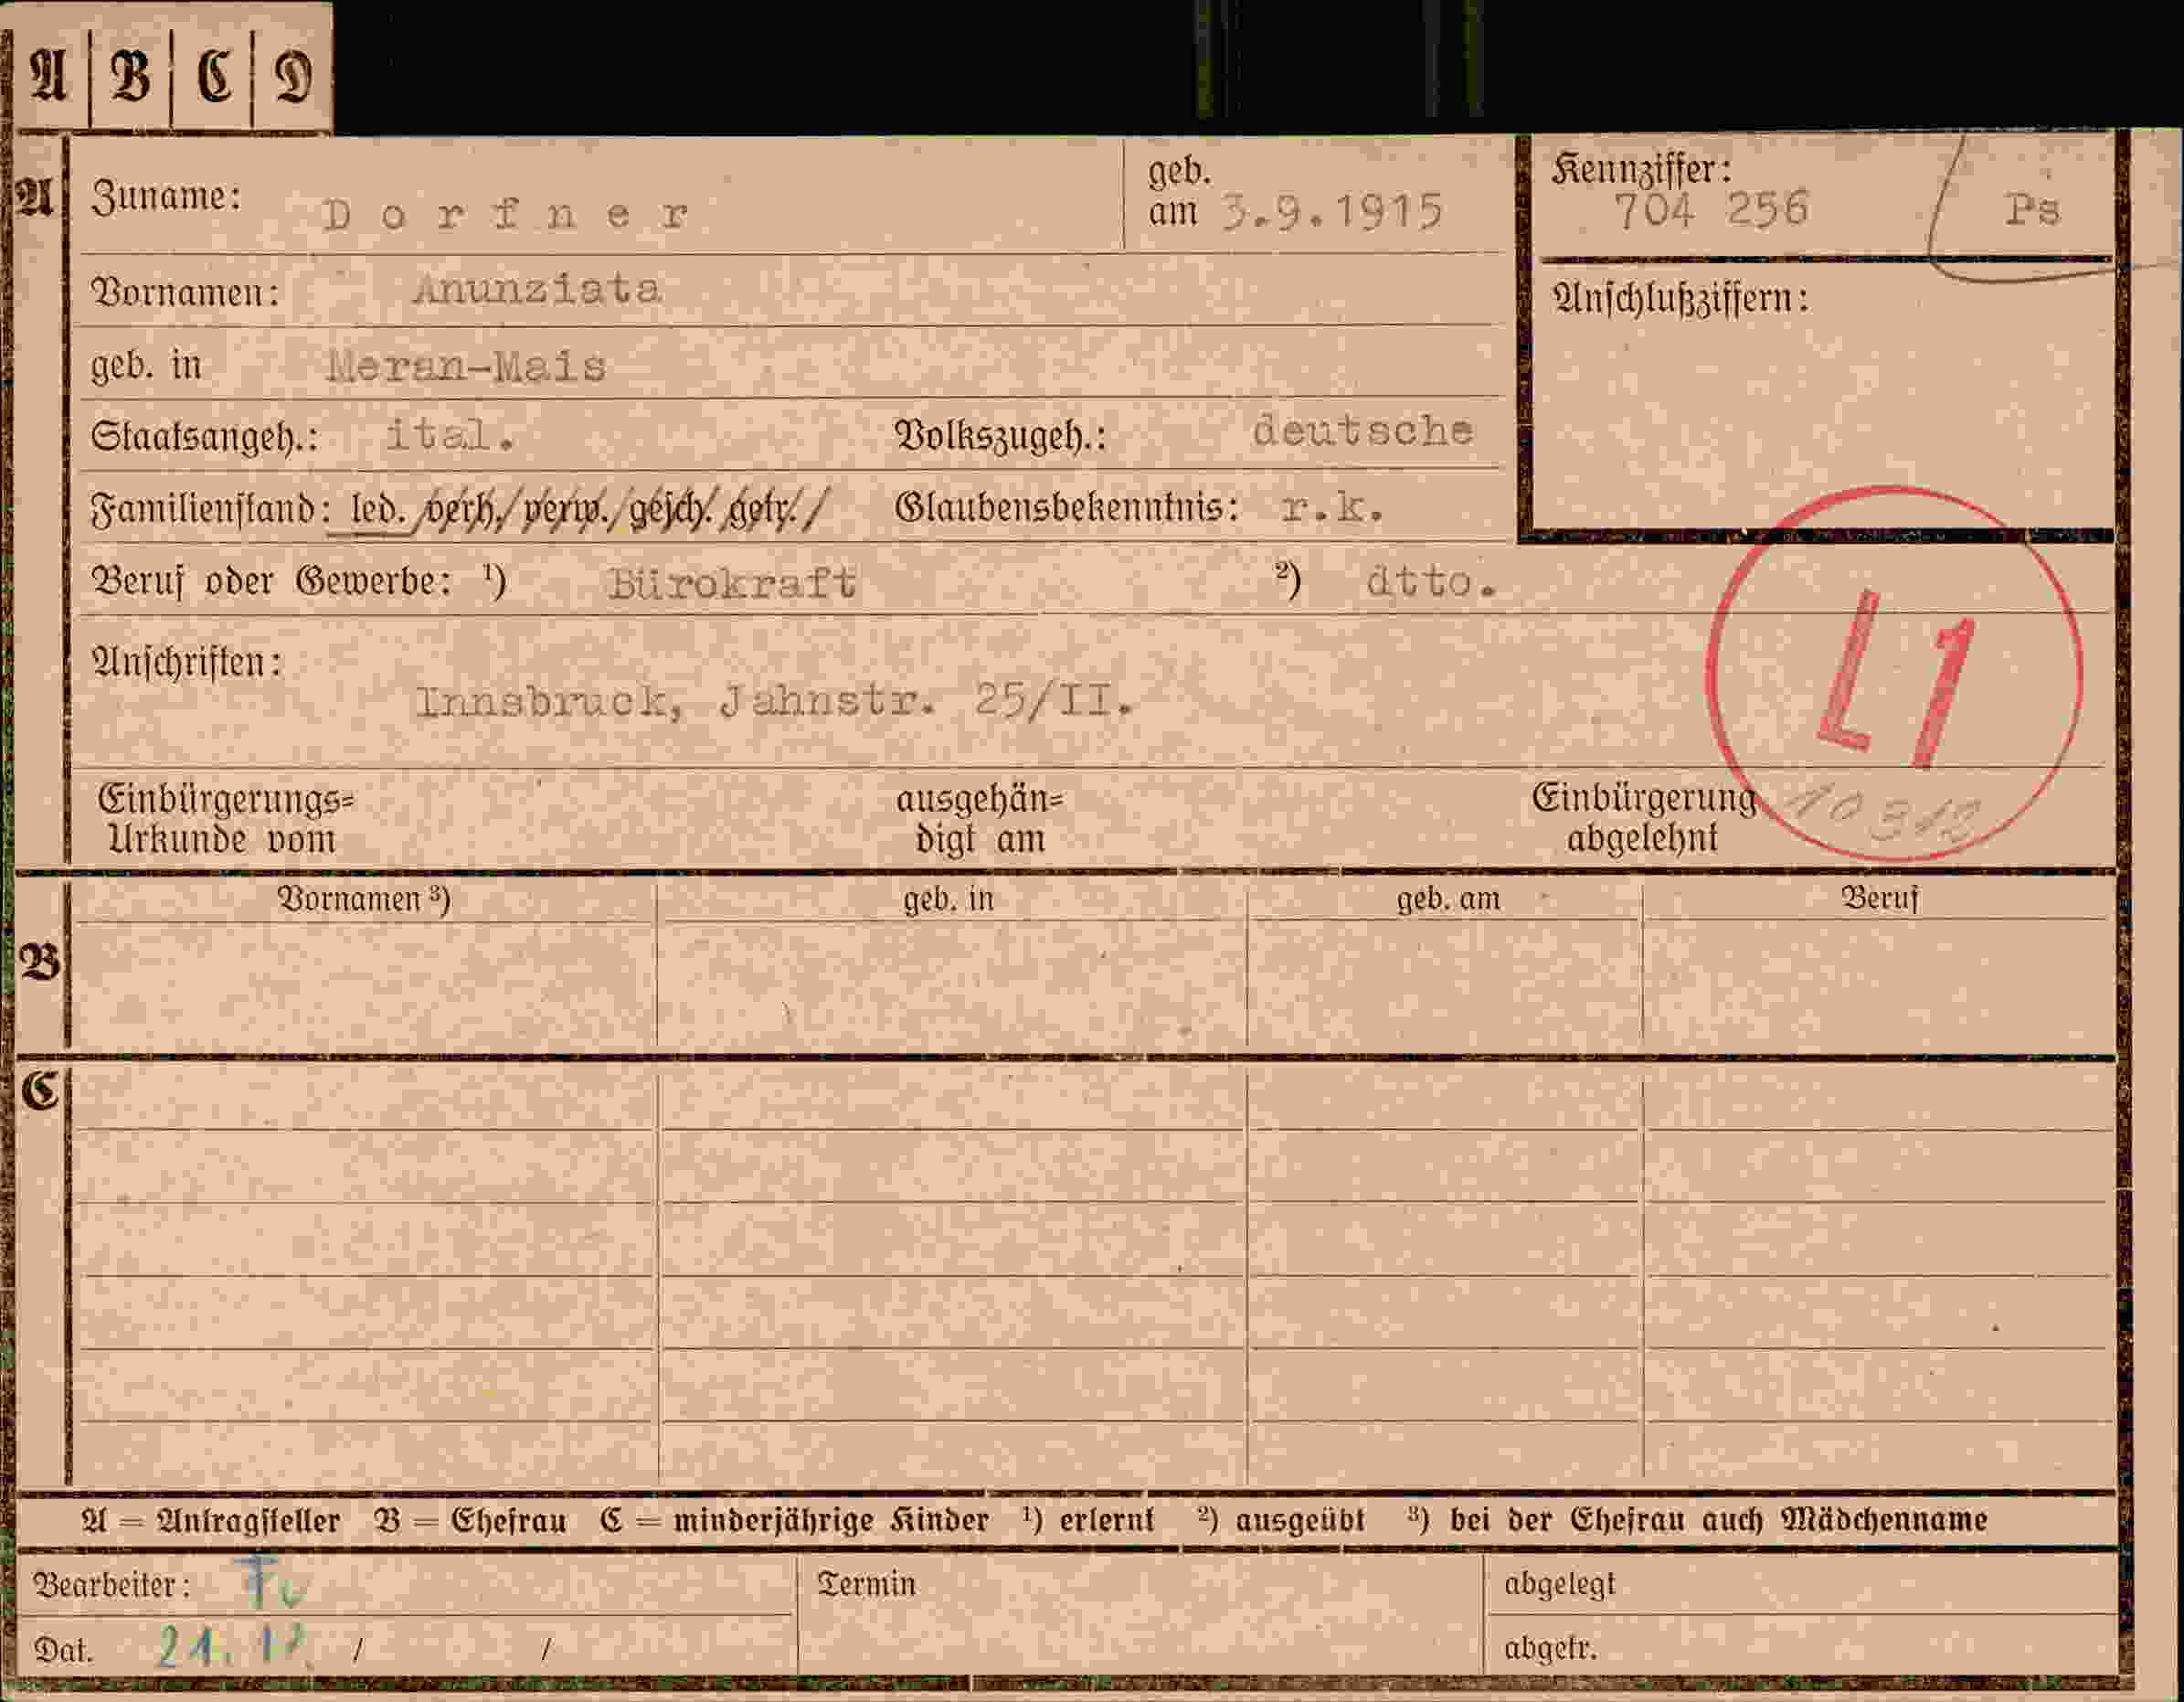 A B C D
A Zuname: Dorfner geb. am 3.9.1915 Kennziffer: 704 256 Ps
Vornamen: Anunziata Anschlußziffern:
geb. in Meran-Mais
Staatsangeh.: ital. Volkszugeh.: deutsche
Familienstand: led. verh./ verw./ gesch./ getr./ Glaubensbekenntnis: r.k.
Beruf oder Gewerbe: ¹) Bürokraft ²) dtto.
Anschriften:
Innsbruck, Jahnstr. 25/II.
L1
10312
Einbürgerungs= ausgehän= Einbürgerung
Urkunde vom digt am abgelehnt
Vornamen ³) geb. in geb. am Beruf
B
C
A = Antragsteller B = Ehefrau C = minderjährige Kinder ¹) erlernt ²) ausgeübt ³) bei der Ehefrau auch Mädchenname
Bearbeiter: Termin abgelegt
Dat. 21. 12. / / abgetr.